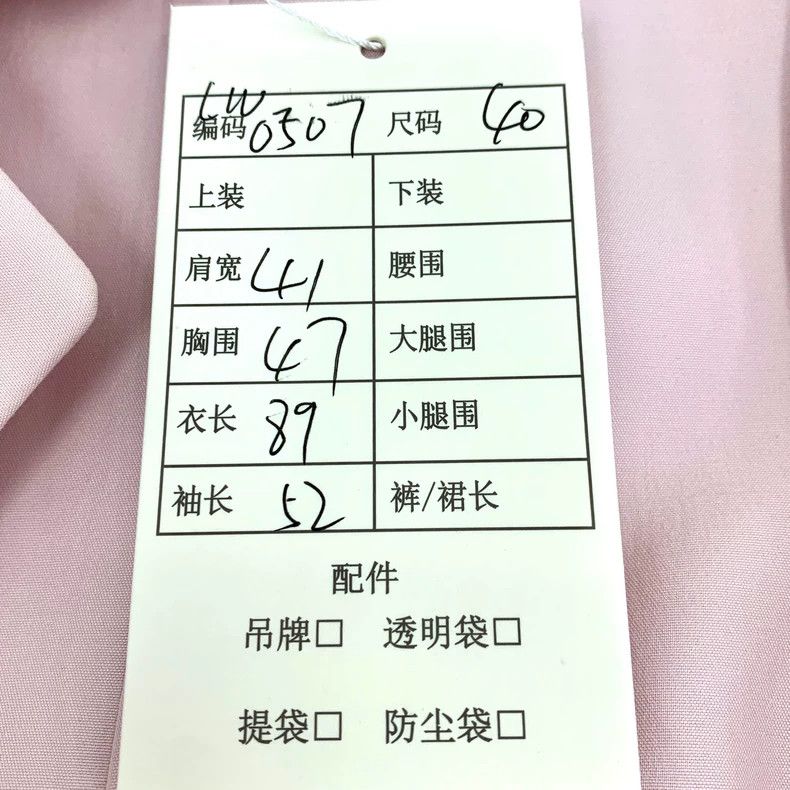 编码 LW0507 尺码 40
上装 下装
肩宽 41 腰围
胸围 47 大腿围
衣长 89 小腿围
袖长 52 裤/裙长
配件
吊牌□ 透明袋□
提袋□ 防尘袋□